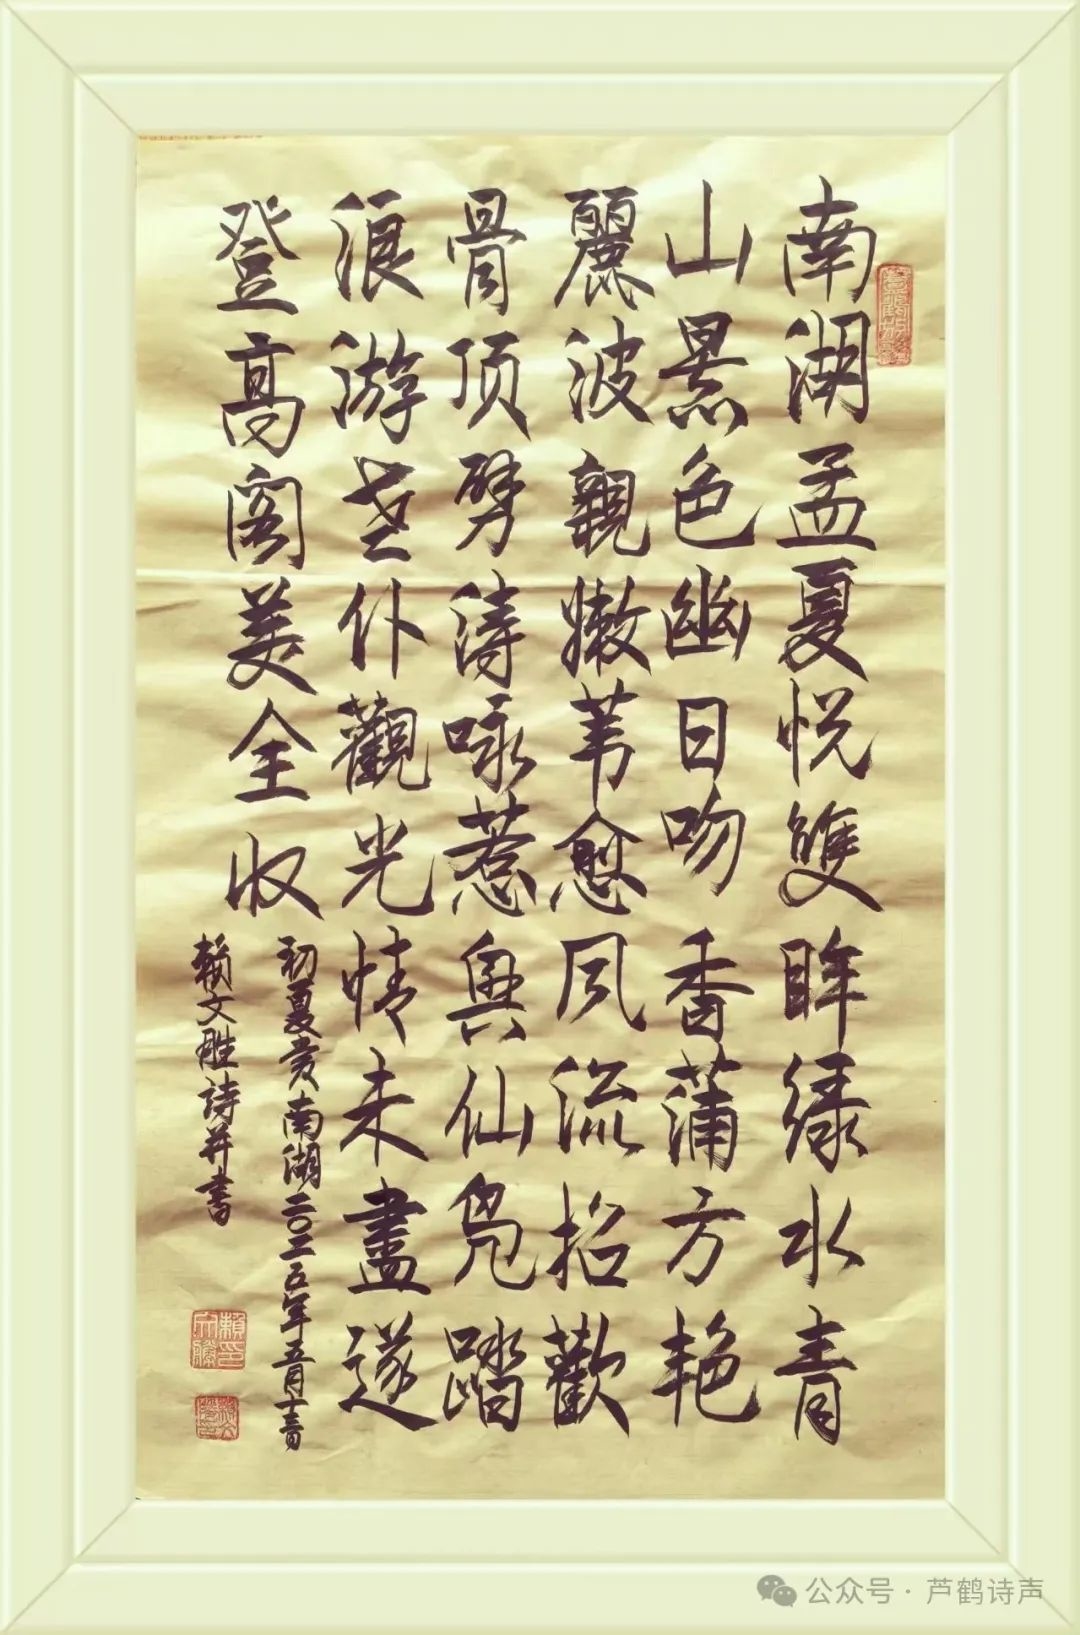 南湖孟夏悦雙眸绿水青
山景色幽日吻香蒲方艳
麗波親嫩苇愈风流招歡
骨顶劈涛咏惹興仙凫踏
浪游老仆觀光情未盡遂
登高阁美全收
初夏爱南湖二〇二五年五月十日
賴文胜诗并書
公众号·芦鹤诗声